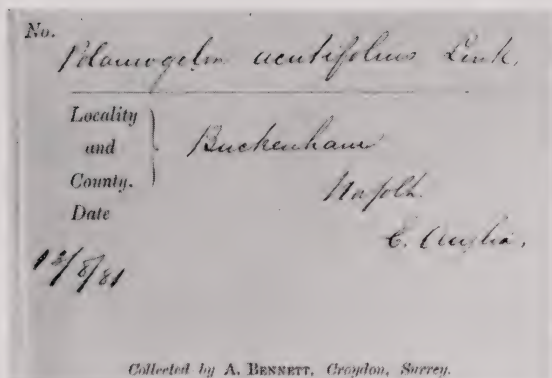 No.
Potamogeton acutifolius Link.
Locality
and Buckenham
County. Norfolk.
Date E. Anglia.
12/8/81
Collected by A. BENNETT, Croydon, Surrey.